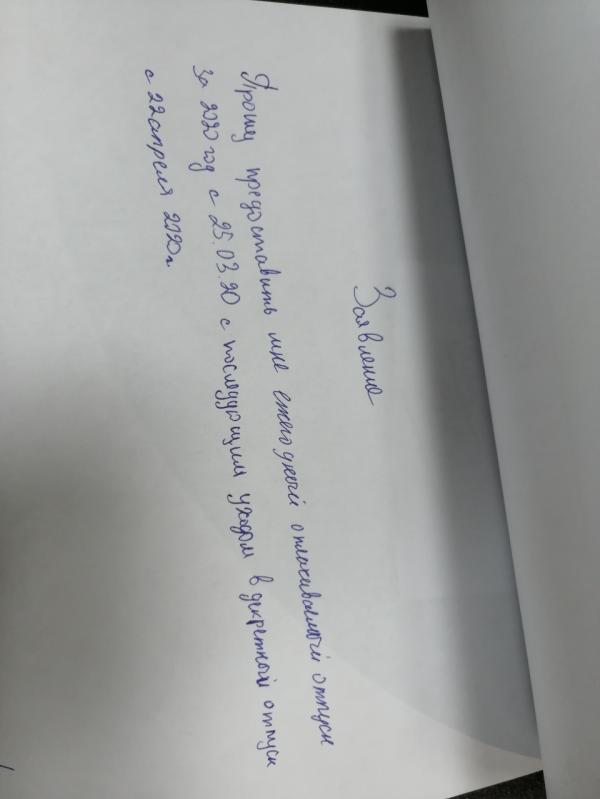 Заявление
Прошу предоставить мне ежегодный оплачиваемый отпуск
за 2020 год с 25.03.20 с последующим уходом в декретный отпуск
с 22 апреля 2020 г.